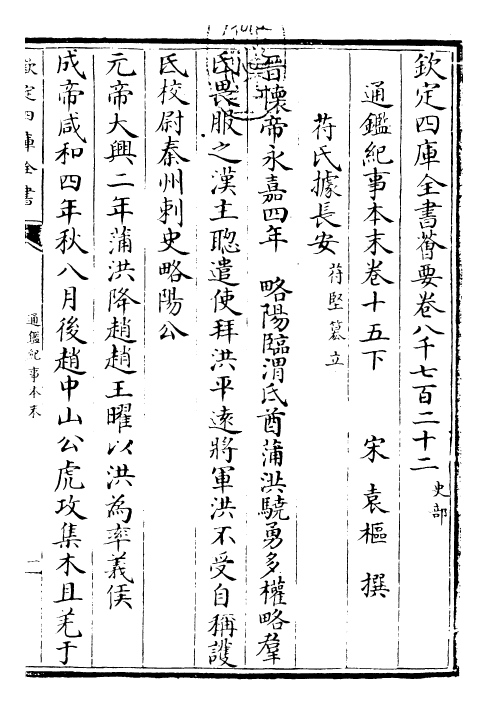 欽定四庫全書薈要卷八千七百二十二 史部
通鑑紀事本末卷十五下 宋 袁樞 撰
苻氏據長安 苻堅纂立
晉懷帝永嘉四年 略陽臨渭氐酋蒲洪驍勇多權略羣
氐畏服之漢主聰遣使拜洪平遠將軍洪不受自稱護
氐校尉秦州刺史略陽公
元帝大興二年蒲洪降趙趙王曜以洪為率義侯
成帝咸和四年秋八月後趙中山公虎攻集木且羌于
欽定四庫全書
通鑑紀事本末